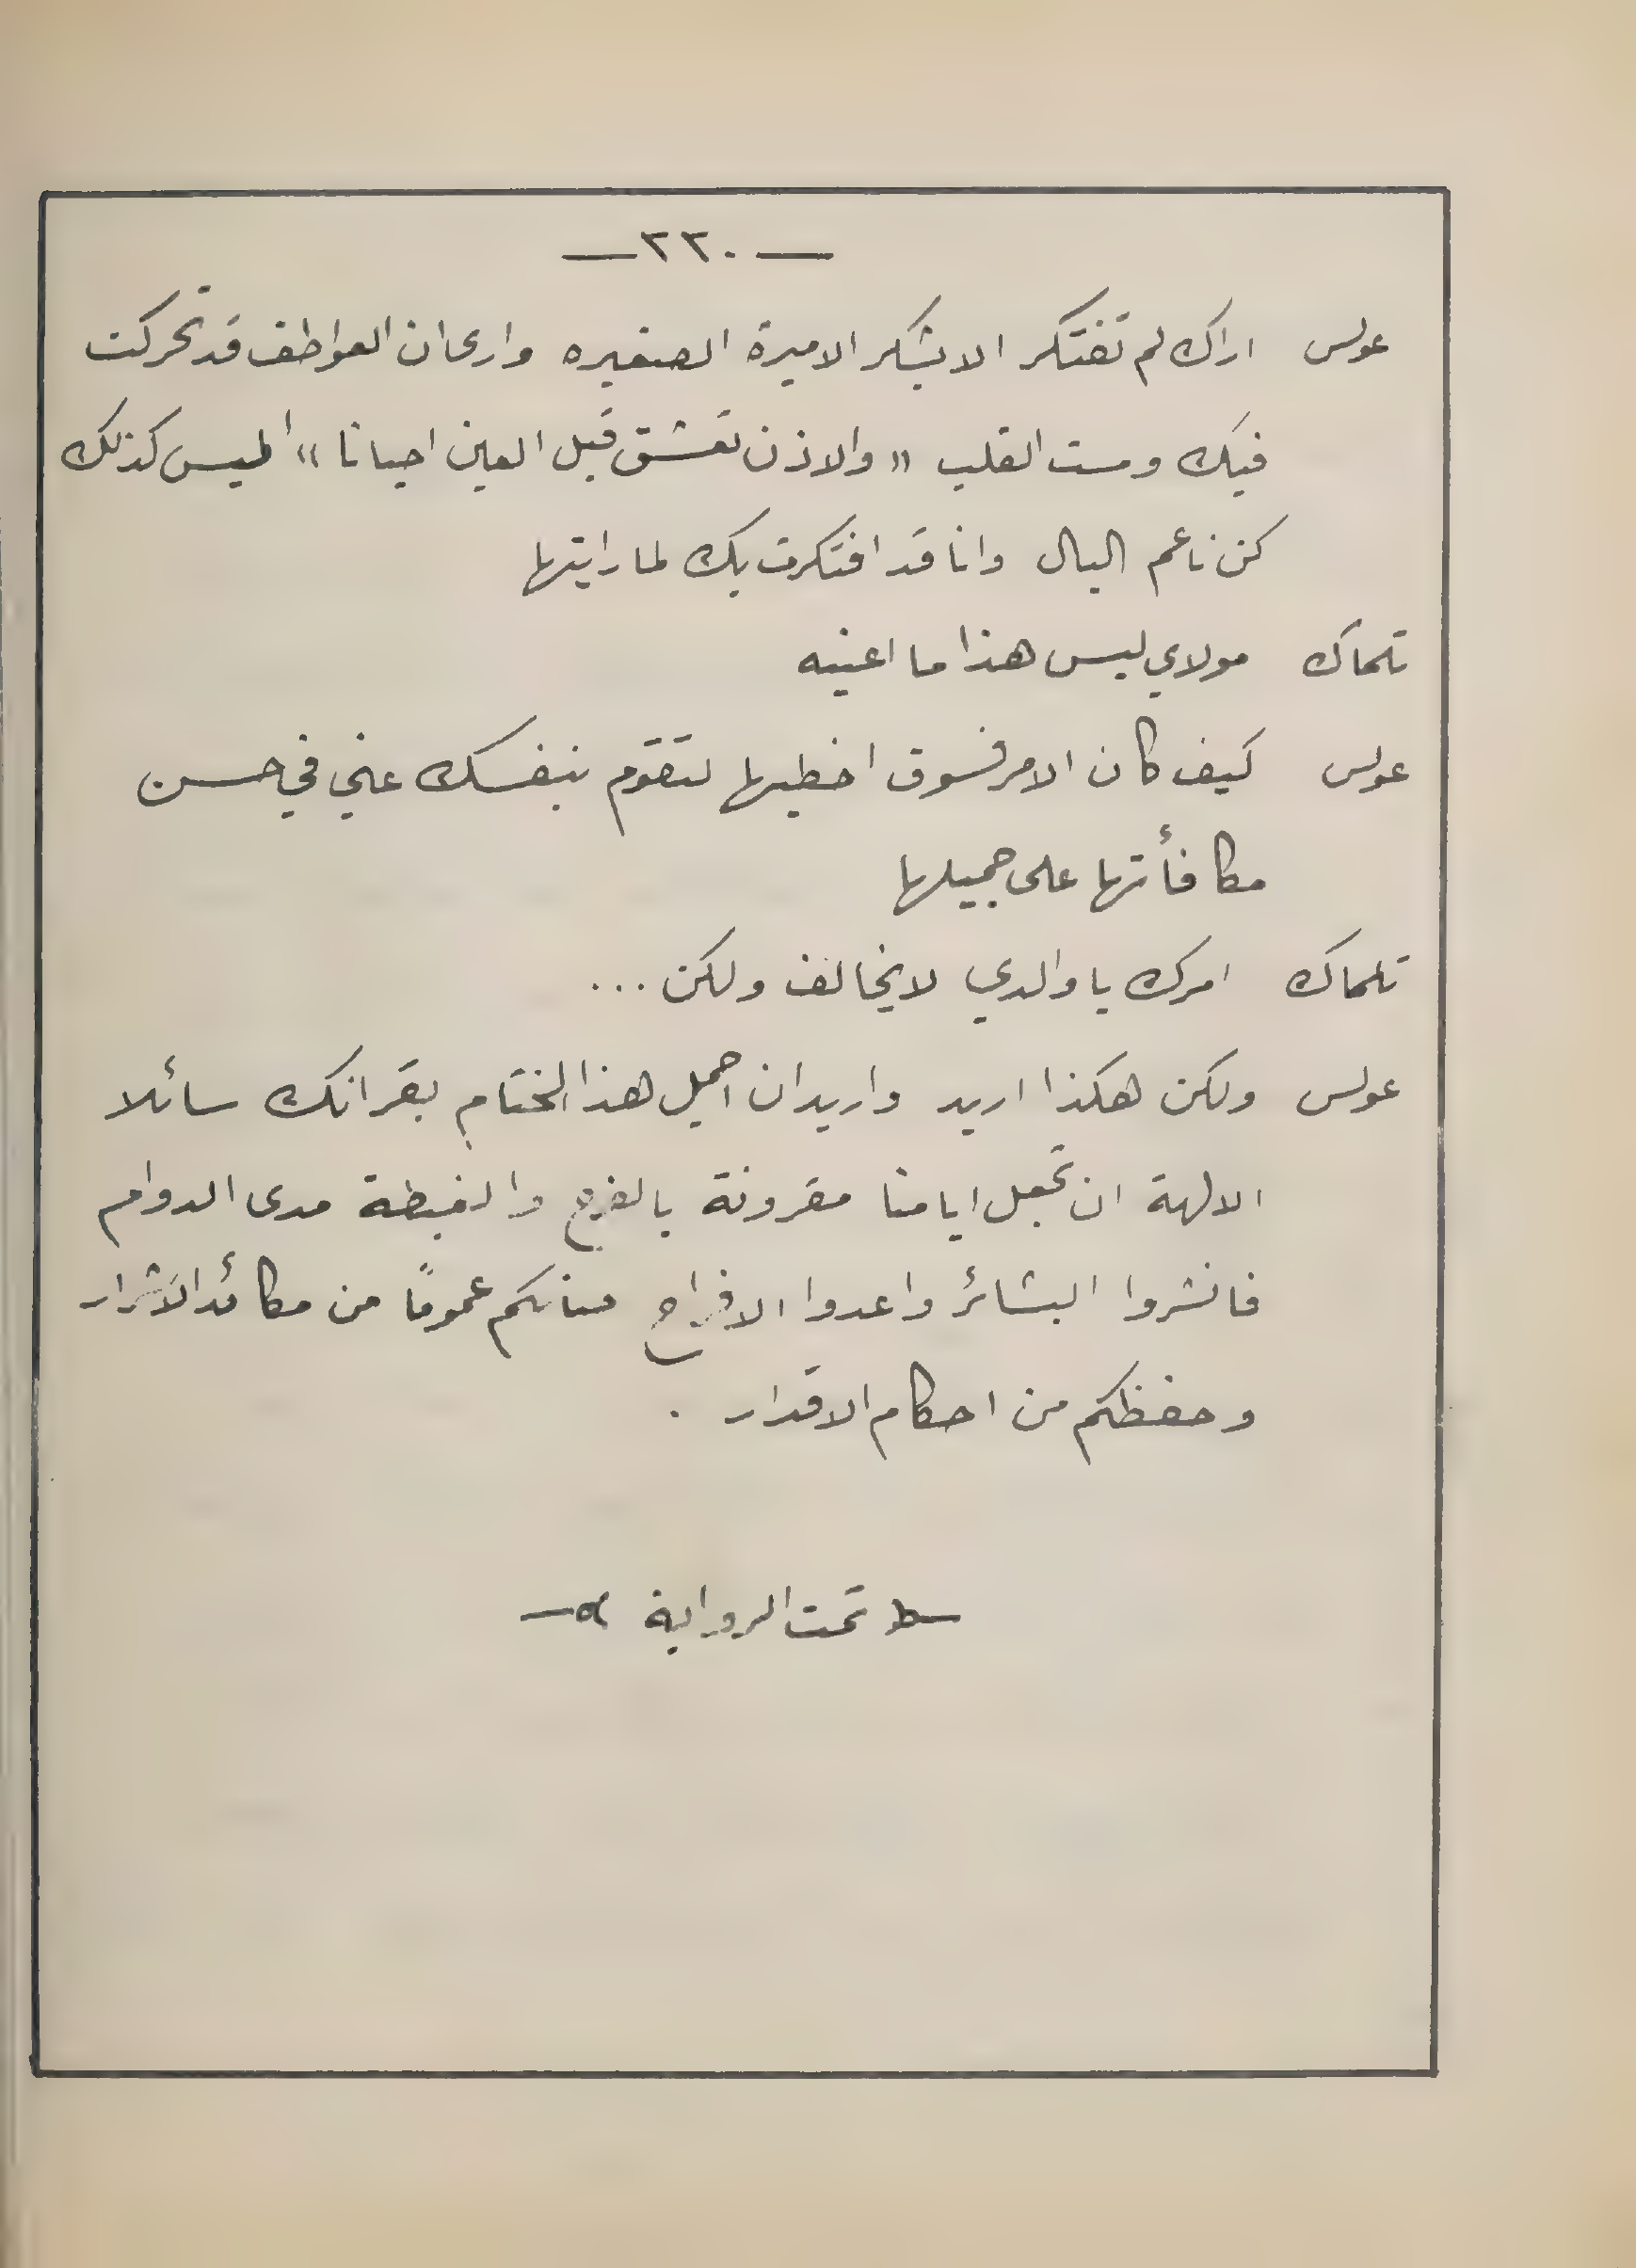 — ٢٢٠ —
عولس اراك لم تفتكر الا بشكر الاميرة الصغيره وارى ان العواطف قد تحركت
فيك ومست القلب « والاذن تعشق قبل العين احيانا » اليس كذلك
كن ناعم البال وانا قد افتكرت بك لما رايتها
تلماك مولاي ليس هذا ما اعنيه
عولس كيف كان الامر فسوف اخطبها لتقوم بنفسك عني في حسن
مكافأتها على جميلها
تلماك امرك يا والدي لا يخالف ولكن ...
عولس ولكن هكذا اريد واريد ان اجمل هذا الختام بقرانك سائلا
الالهة ان تجعل ايامنا مقرونة بالفرح والغبطة مدى الدوام
فانشروا البشائر واعدوا الافراح صانكم عمومًا من مكائد الاشرار
وحفظكم من احكام الاقدار .
— تمت الرواية —